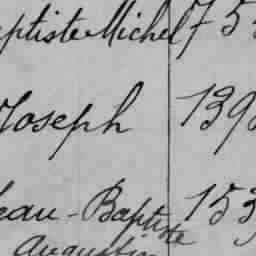 aptiste Michel 75
Joseph 139
Jean-Baptiste 153
Augustin